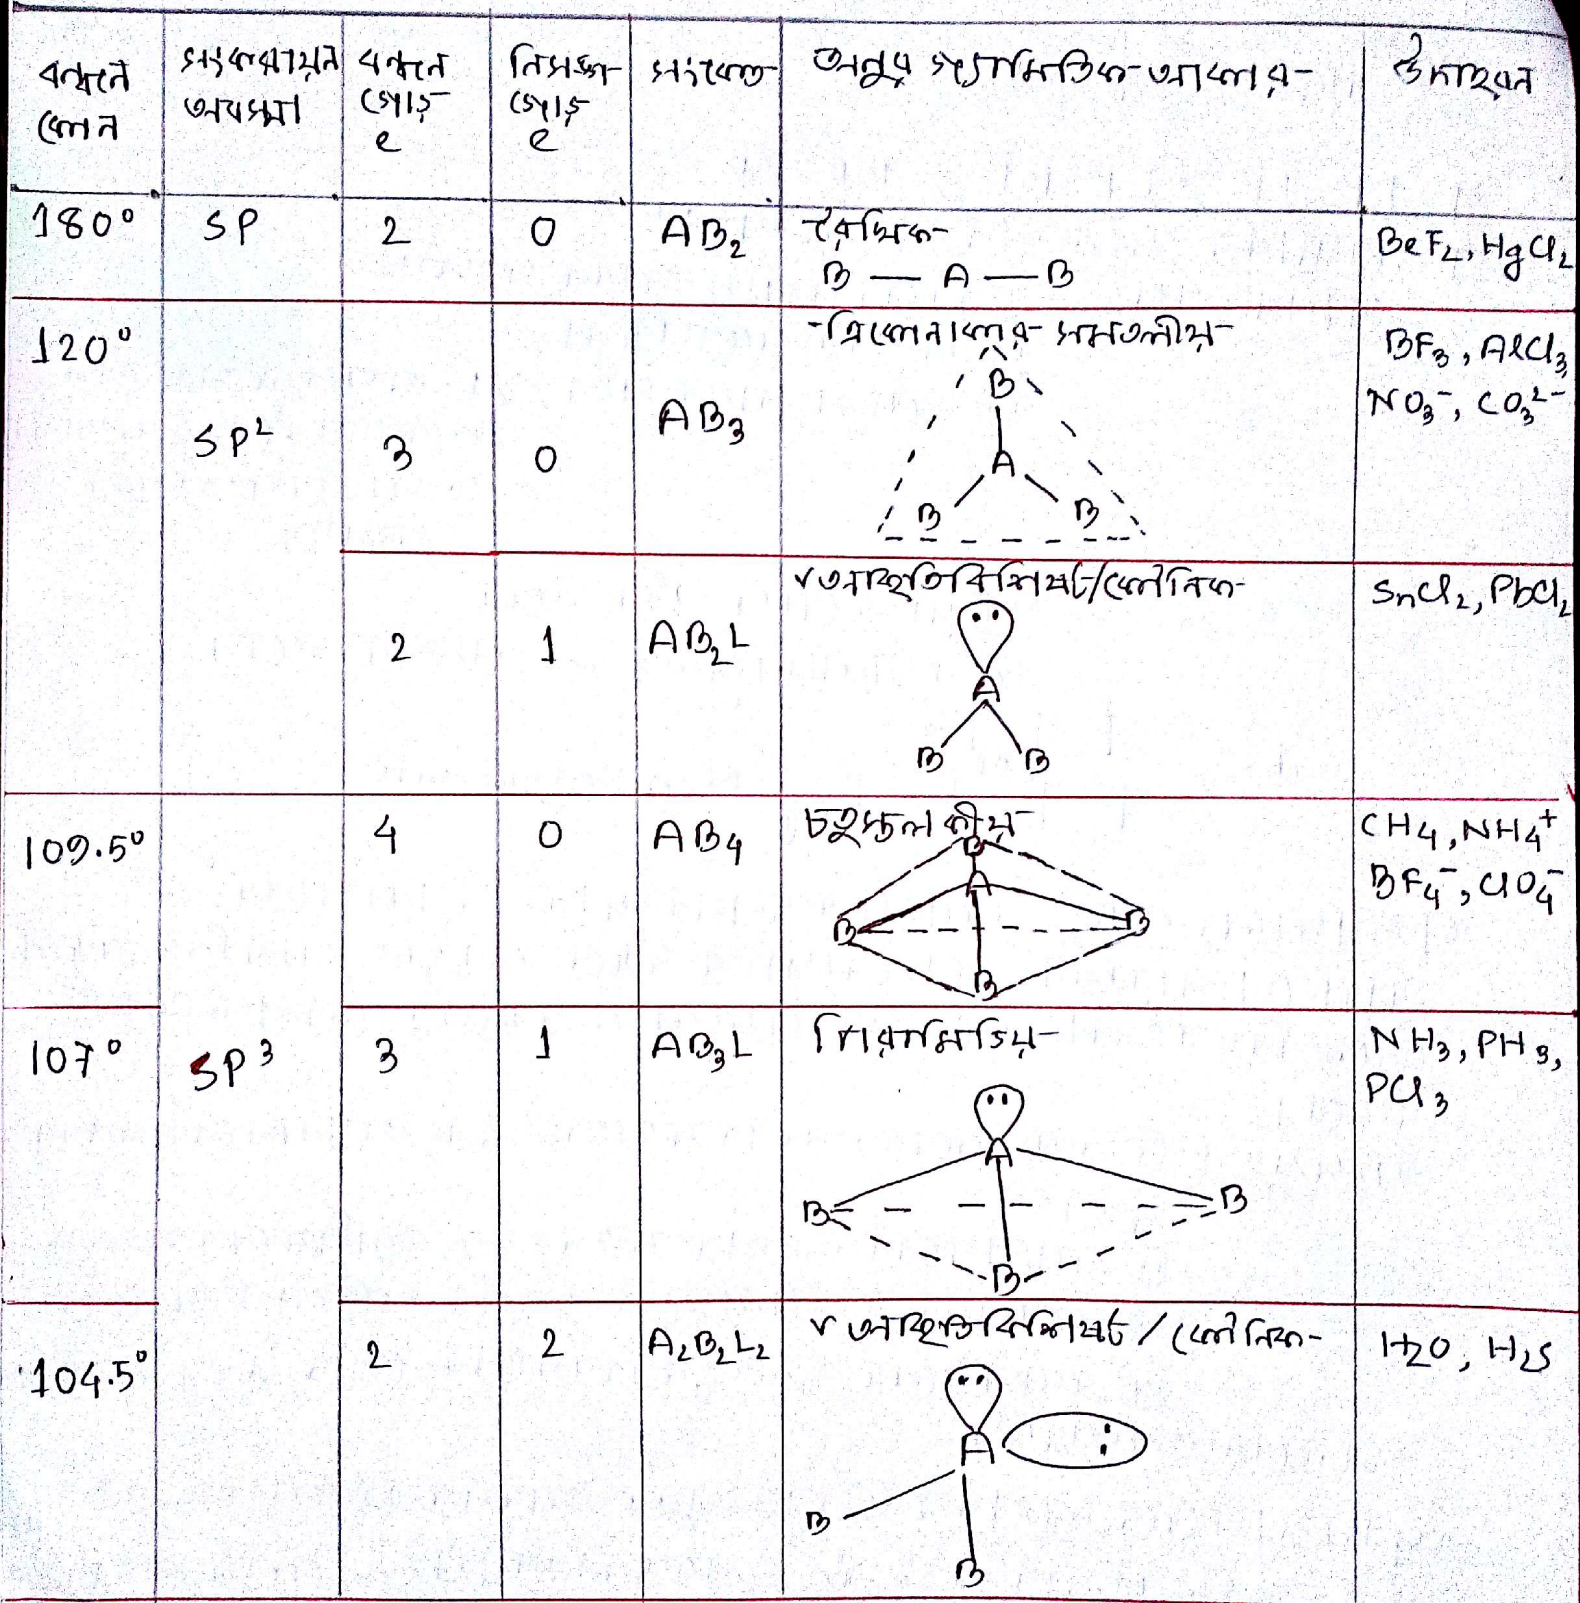 বন্ধন কোন | সংকরায়ন অবস্থা | বন্ধন জোড় e | নিসঙ্গ জোড় e | সংকেত | অনুর জ্যামিতিক আকার | উদাহরন
180° | SP | 2 | 0 | AB₂ | রৈখিক | BeF₂, HgCl₂
B — A — B
120° | SP² | 3 | 0 | AB₃ | ত্রিকোনাকার সমতলীয় | BF₃, AlCl₃,
NO₃⁻, CO₃²⁻
B
A
B B
2 | 1 | AB₂L | V আকৃতিবিশিষ্ট/কৌনিক | SnCl₂, PbCl₂
A
B B
109.5° | SP³ | 4 | 0 | AB₄ | চতুস্তলকীয় | CH₄, NH₄⁺
BF₄⁻, ClO₄⁻
B
A
B B
B
107° | 3 | 1 | AB₃L | পিরামিডিয় | NH₃, PH₃,
PCl₃
A
B B
B
104.5° | 2 | 2 | A₂B₂L₂ | V আকৃতিবিশিষ্ট / কৌনিক | H₂O, H₂S
A
B
B